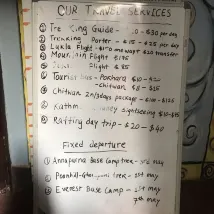 OUR TRAVEL SERVICES
Tre king Guide - $30 per day
Trekking Porter - $15 - $25 per day
Lukla Flight - one way $20 transfer
Mountain Flight $195
Flight $85
Tourist bus - Pokhara $10 -
- Chitwan $11 - $15
Chitwan 2n/3days package - $100 - $125
Kathm sightseeing $10-$15
Rafting day trip - $20 - $40
Fixed departure
① Annapurna Base Camp trek - may
② Poonhill trek - 1st may
③ Everest Base Camp - 1st may
7th may